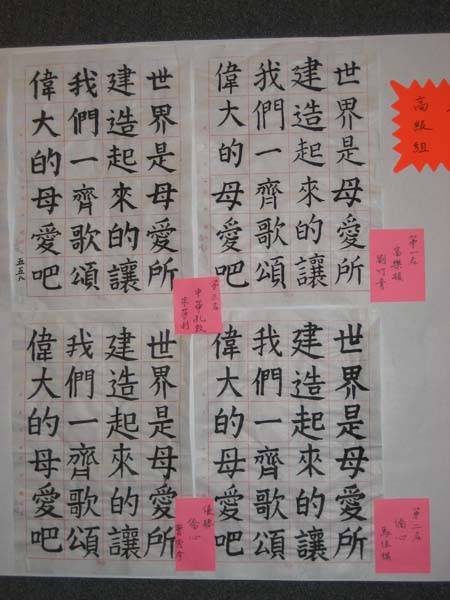 高級組
世界是母愛所
建造起來的讓
我們一齊歌頌
偉大的母愛吧
第一名
世界是母愛所
建造起來的讓
我們一齊歌頌
偉大的母愛吧
五五八
第三名
世界是母愛所
建造起來的讓
我們一齊歌頌
偉大的母愛吧
第二名
僑心
世界是母愛所
建造起來的讓
我們一齊歌頌
偉大的母愛吧
優勝
僑心